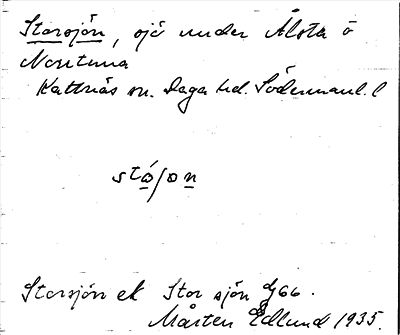 Storsjön, sjö under Ålsta o
Nortuna
Kattnäs sn. Daga hd. Södermanl. l
stó/ɒn
Storsjön ek Stor sjön G66.
Mårten Edlund 1935.